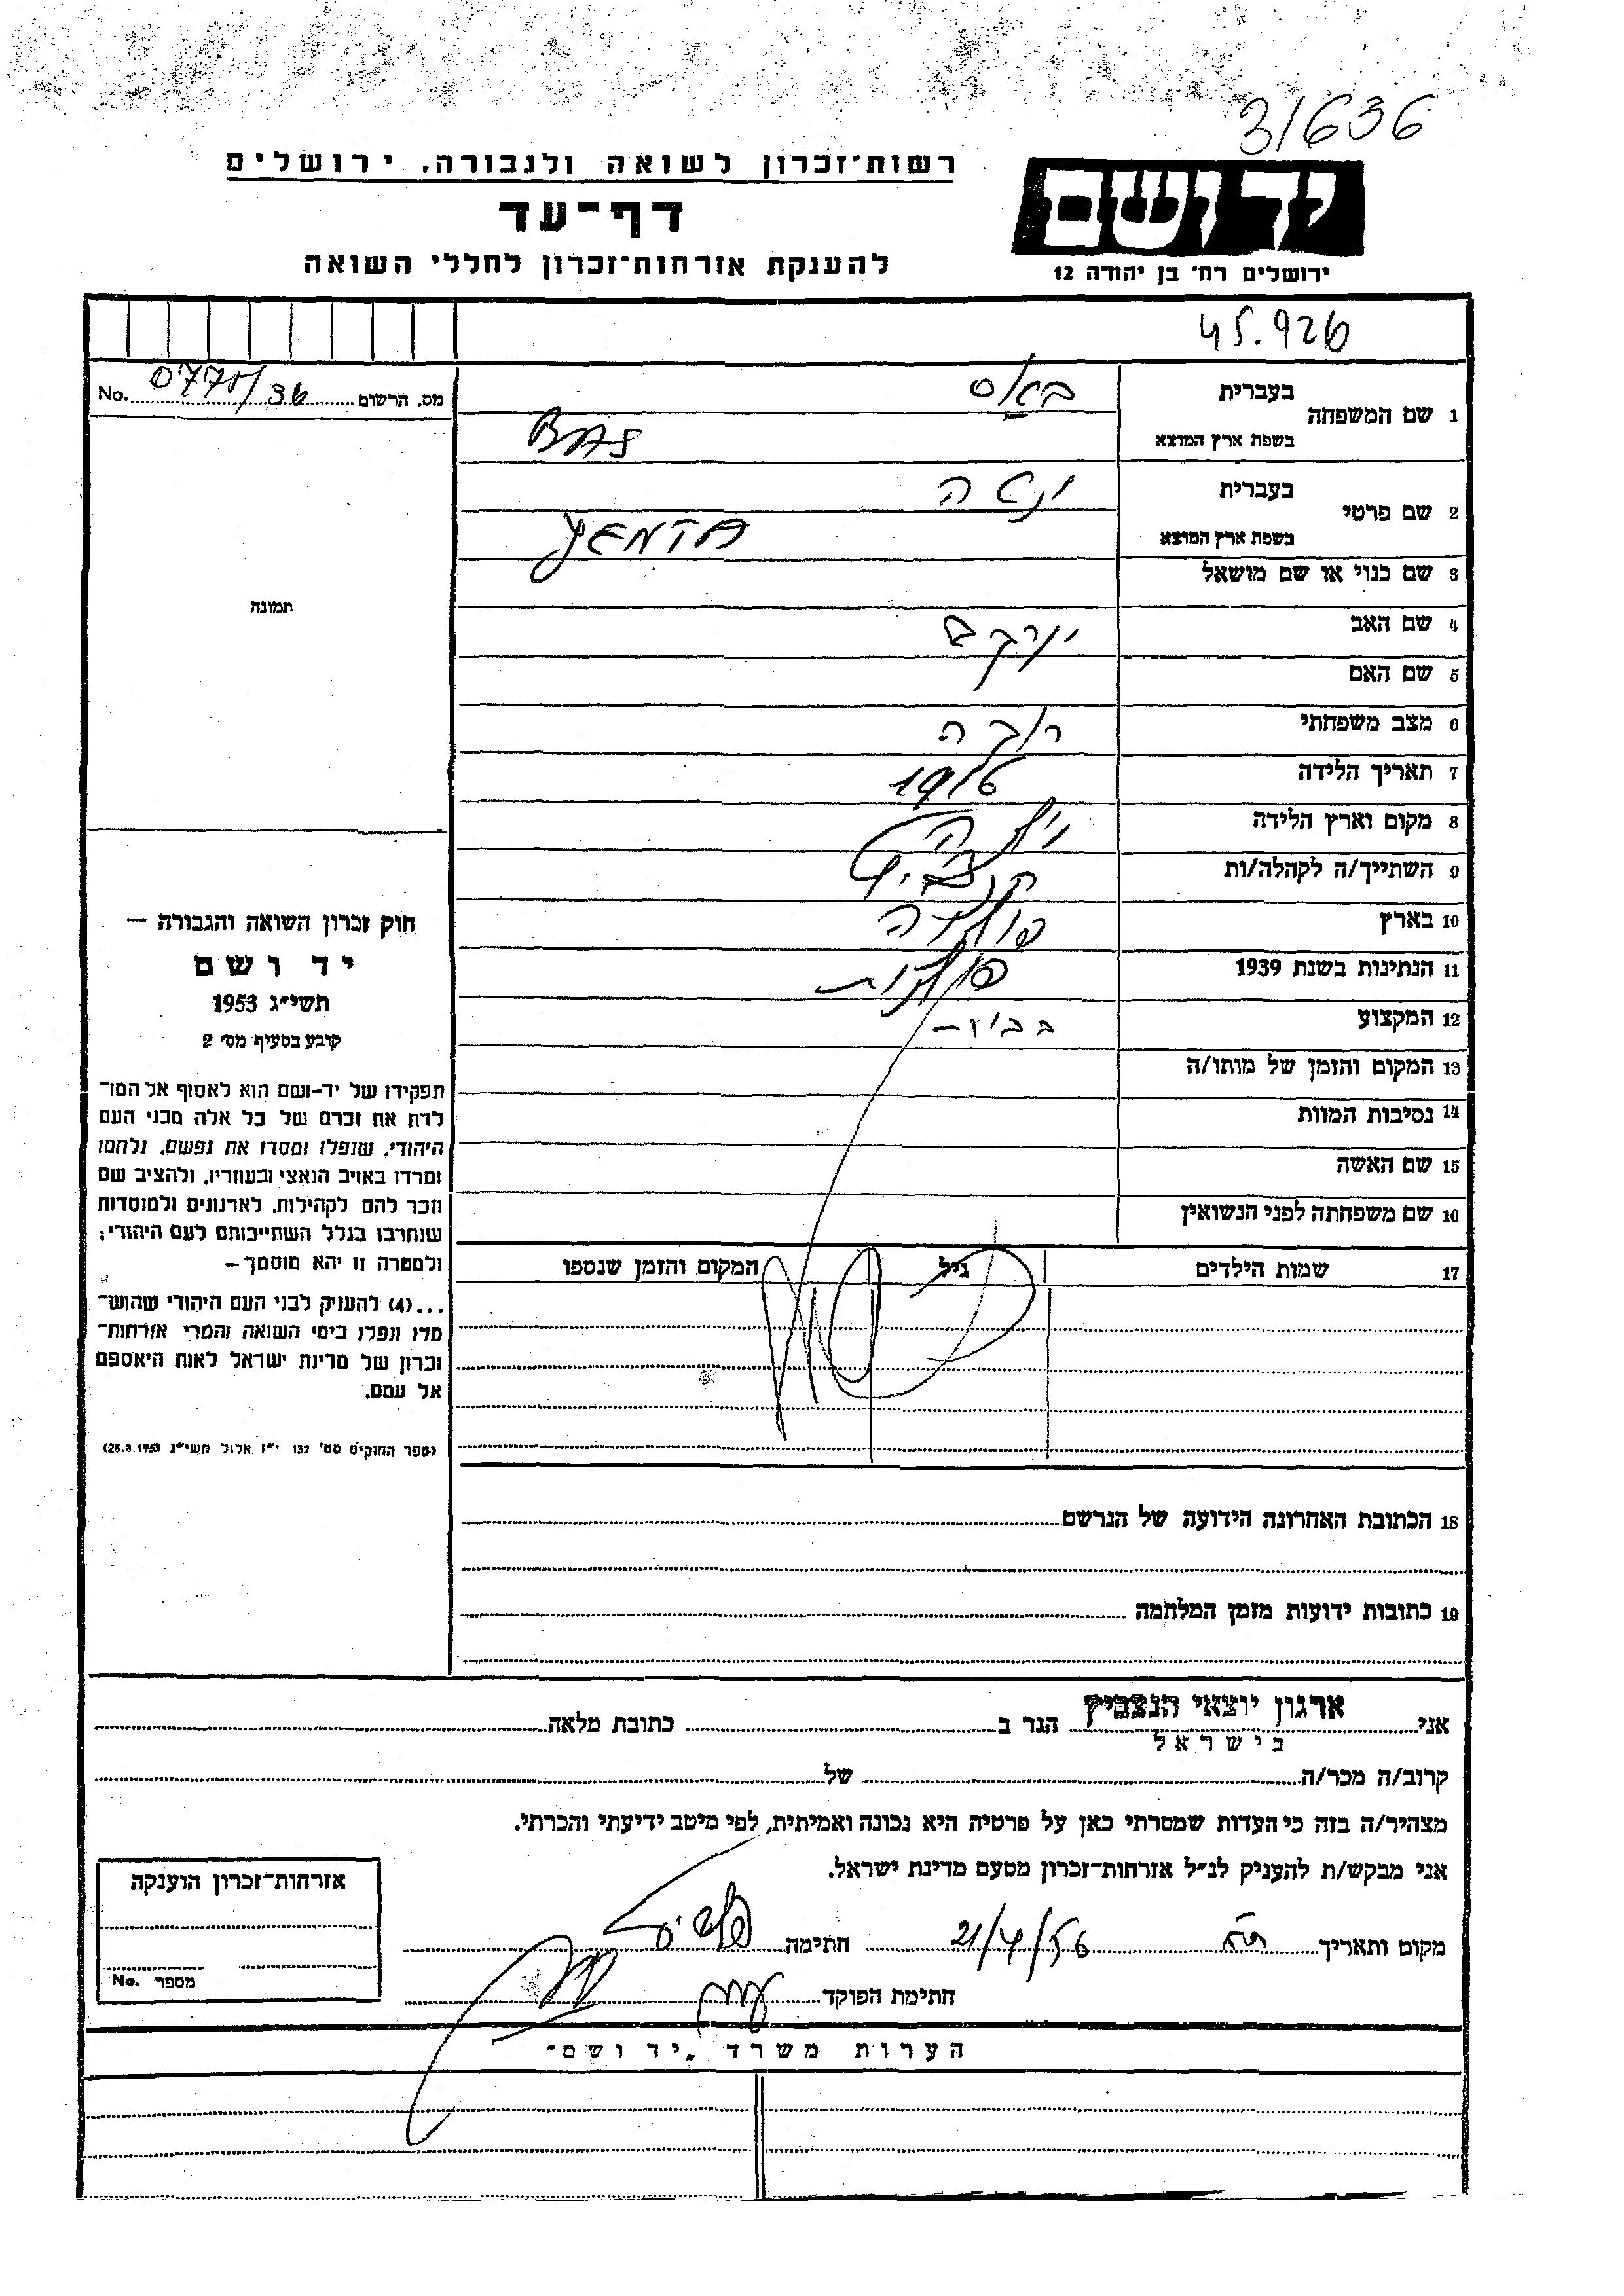 31636
רשות־זכרון לשואה ולגבורה, ירושלים
יד ושם
דף־עד
להענקת אזרחות־זכרון לחללי השואה
ירושלים רח' בן יהודה 12
45.926
מס. הרשום 0771/36 No.
1 שם המשפחה
בעברית באס
בשפת ארץ המוצא BAS
2 שם פרטי
בעברית ינטה
בשפת ארץ המוצא YENTA
3 שם כנוי או שם מושאל
4 שם האב
5 שם האם
6 מצב משפחתי רוקה
7 תאריך הלידה 1916
8 מקום וארץ הלידה
9 השתייך/ה לקהלה/ות
10 בארץ פולניה
11 הנתינות בשנת 1939 פולנית
12 המקצוע
13 המקום והזמן של מותו/ה
14 נסיבות המוות
15 שם האשה
16 שם משפחתה לפני הנשואין
17 שמות הילדים גיל המקום והזמן שנספו
18 הכתובת האחרונה הידועה של הנרשם
19 כתובות ידועות מזמן המלחמה
תמונה
חוק זכרון השואה והגבורה —
יד ושם
תשי״ג 1953
קובע בסעיף מס׳ 2
תפקידו של יד-ושם הוא לאסוף אל המו־
לדת את זכרם של כל אלה מבני העם
היהודי, שנפלו ומסרו את נפשם, נלחמו
ומרדו באויב הנאצי ובעוזריו, ולהציב שם
וזכר להם לקהילות, לארגונים ולמוסדות
שנחרבו בגלל השתייכותם לעם היהודי;
ולמטרה זו יהא מוסמך –
...(4) להעניק לבני העם היהודי שהוש־
מדו ונפלו בימי השואה והמרי אזרחות־
זכרון של מדינת ישראל לאות היאספם
אל עמם.
(ספר החוקים מס׳ 132 י״ז אלול תשי״ג 28.8.1953)
אני ארגון יוצאי הנצביץ הגר ב כתובת מלאה
בישראל
קרוב/ה מכר/ה של
מצהיר/ה בזה כי העדות שמסרתי כאן על פרטיה היא נכונה ואמיתית, לפי מיטב ידיעתי והכרתי.
אני מבקש/ת להעניק לנ״ל אזרחות־זכרון מטעם מדינת ישראל.
מקום ותאריך ת״א 21/4/56 חתימה
חתימת הפוקד
אזרחות־זכרון הוענקה
מספר No.
הערות משרד „יד ושם״